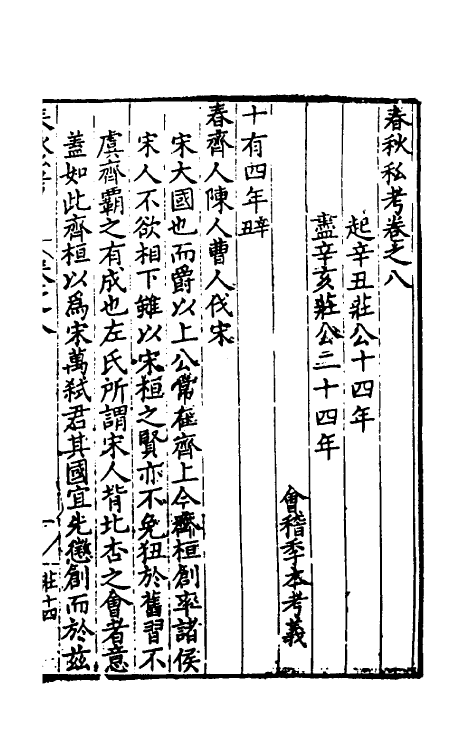 春秋私考卷之八
起辛丑莊公十四年
盡辛亥莊公二十四年
會稽季本考義
十有四年辛丑
春齊人陳人曹人伐宋
宋大國也而爵以上公常在齊上今齊桓創率諸侯
宋人不欲相下雖以宋桓之賢亦不免狃於舊習不
虞齊霸之有成也左氏所謂宋人背北杏之會者意
蓋如此齊桓以為宋萬弒君其國宜先懲創而於茲
莊十四